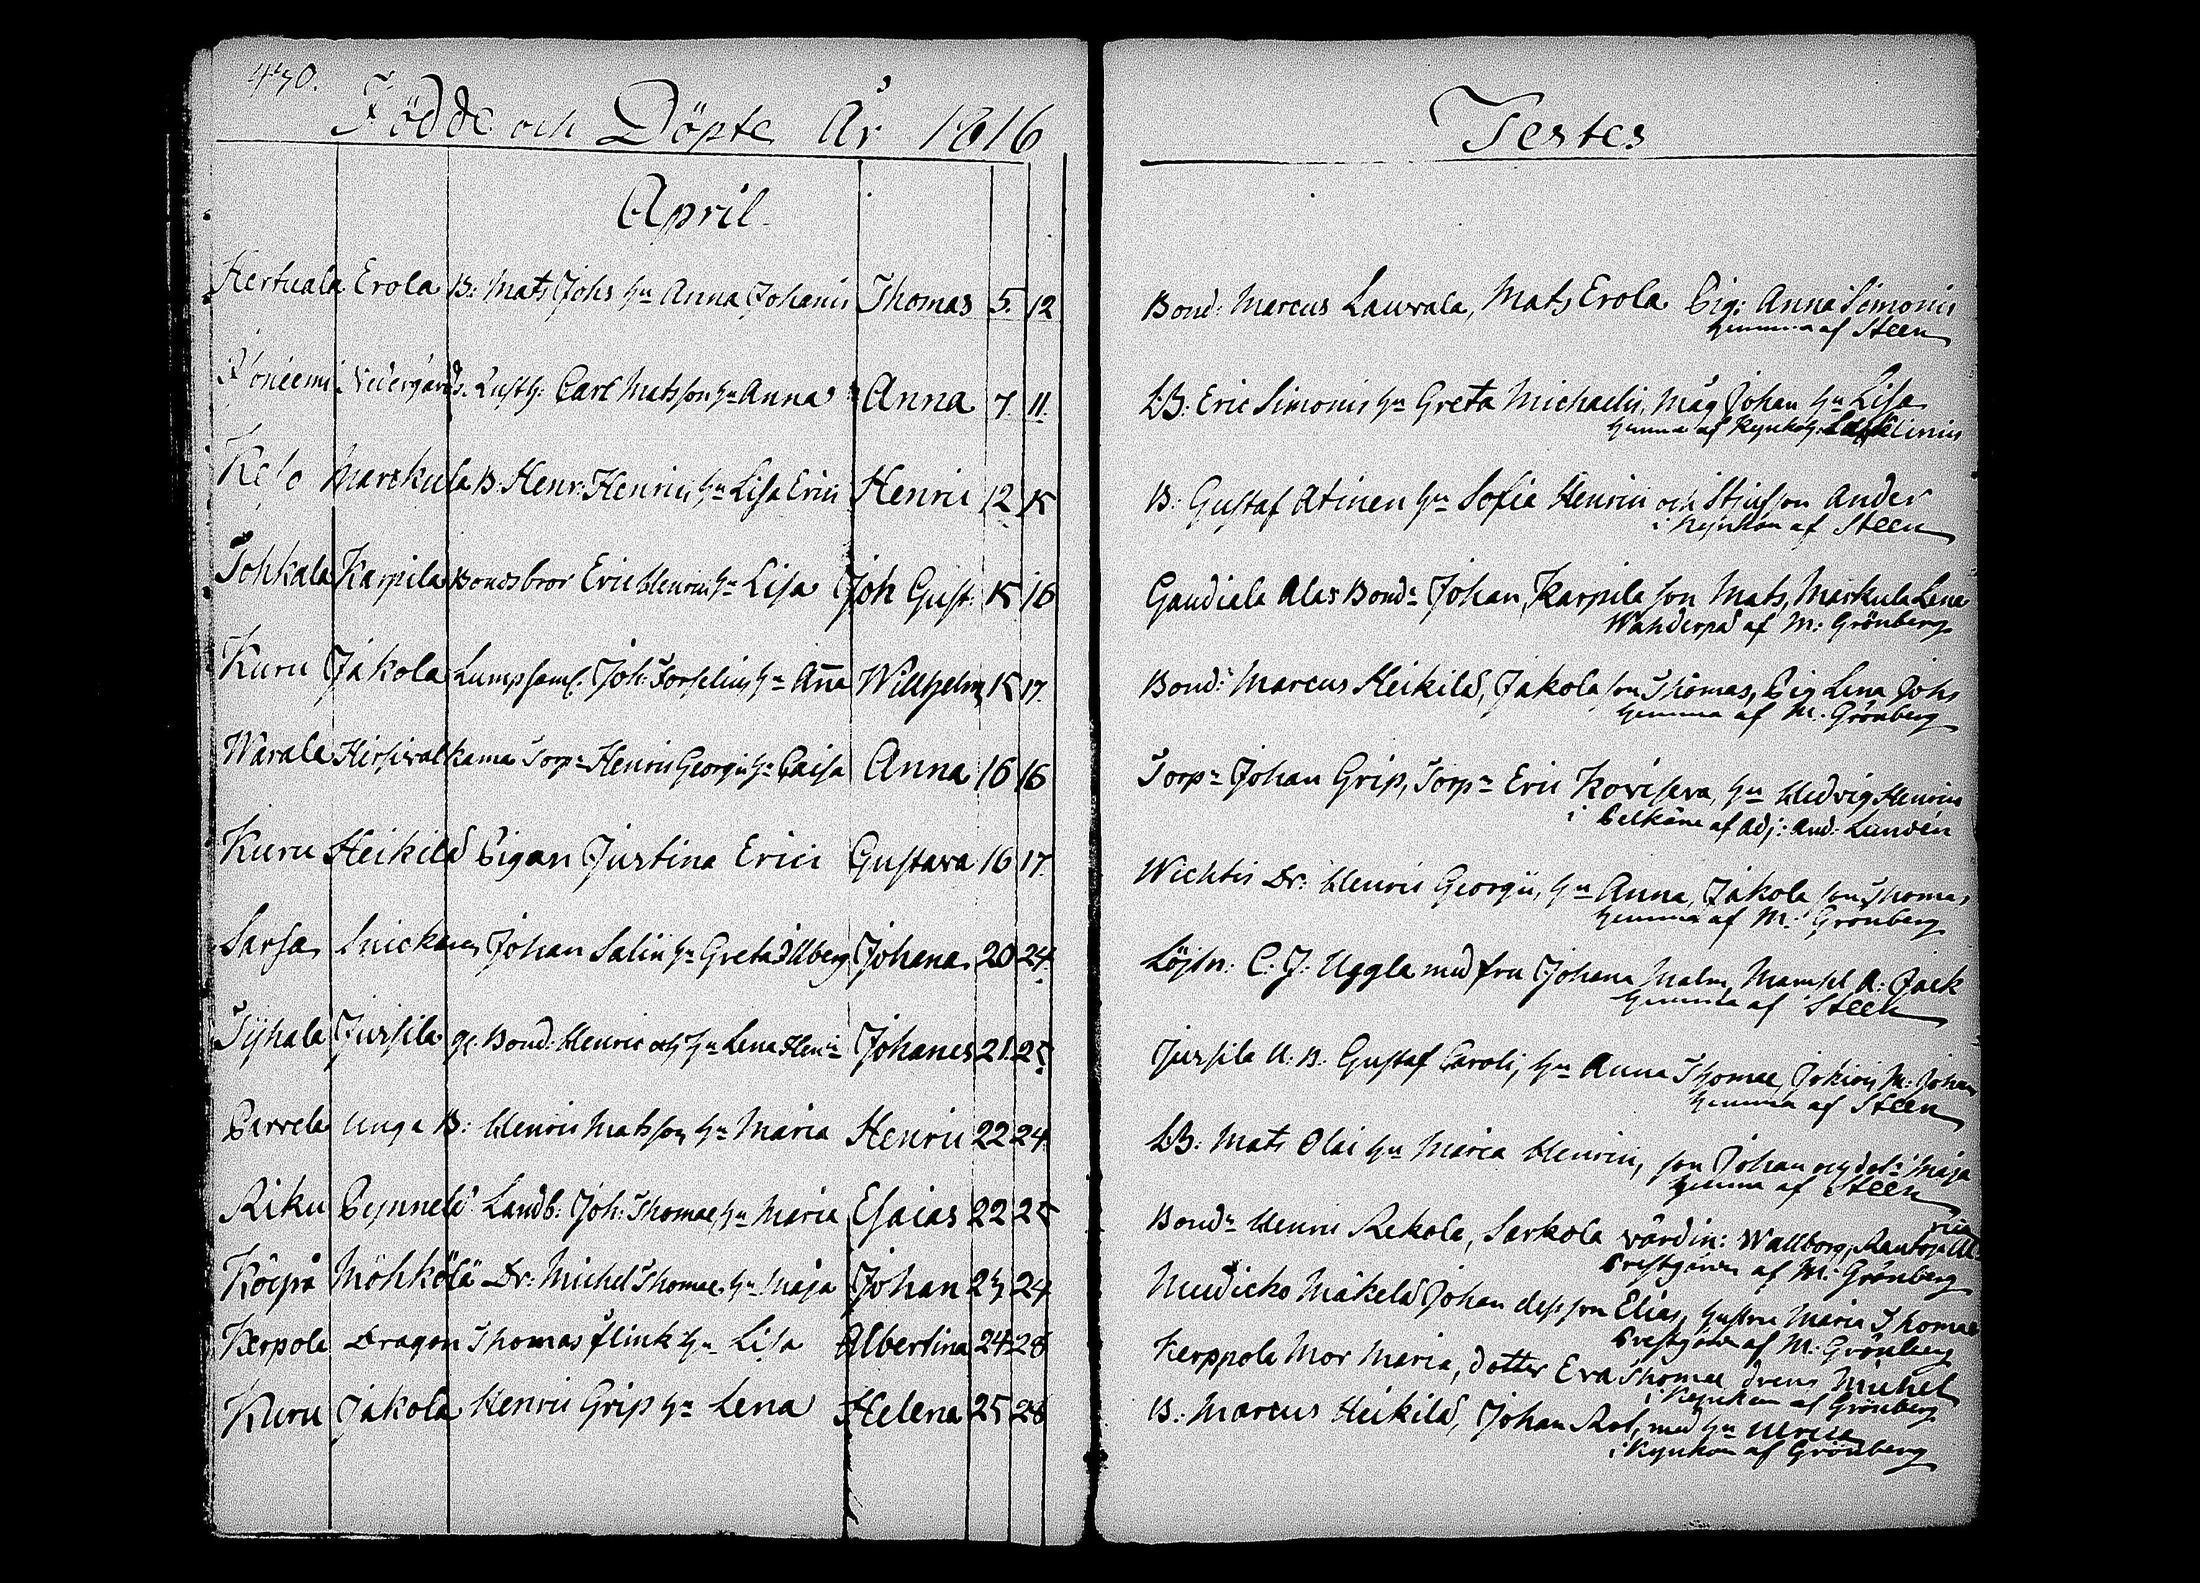 430.
Födde och Döpte År 1816
April.
Hertuala Erola B: Mats Johs hu Anna Johanis Thomas 5. 12
Nedergårds. Carl Matsson hu Anna Anna 7. 11.
Keso Marckula B. Henr: Henrici hu Lisa Erici Henric 12 15
Tohkala Karpila Bondsbror Eric Henrici hu Lisa Joh Gust: 15 16
Kuru Jakola Lumpsaml. Joh: Forselius hu Aña Willhelm 15 17.
Warala Torpr Henric Georgii hu Caisa Anna 16 16
Kuru Heikilä Pigan Justina Erici Gustava 16 17.
Sarsa Snickaren Johan Salin hu Greta Johana 20 24.
Jussila Bond: Henric och hu Lena Johanes 21. 25
Unga B: Henric Matsson hu Maria Henric 22 24
Riku Landb: Joh: Thomae hu Maria Esaias 22 25
Möhkölä Dr: Michel Thomae hu Maja Johan 23 24
Kerpola Dragon Thomas Flink hu Lisa Albertina 24 28
Kuru Jakola Henric Grip hu Lena Helena 25 28
Testes
Bond: Marcus Laurala, Mats Erola Pig: Anna Simonis
hemma af Steen
LB: Eric Simonis hu Greta Michaelis, Måg Johan hu Lisa
hemma af
B: Gustaf Atinen hu Sofia Henrici och Ander
i Kyrkan af Steen
Alas Bondn Johan, Karpila son Mats, Markula Lena
af M: Grönberg
Bondn Marcus Heikilä, Jakola son Thomas, Pig Lena Johs
hemma af M. Grönberg
Torpn Johan Grip, Torpn Eric hu Hedvig Henrici
i Pelkäne af Adj: And: Lundén
Dr: Henric Georgii, hu Anna, Jakola son Thomas
hemma af M: Grönberg
Löjtn: C: J: Uggla med fru Johana Malm, Mamsel A: Jack
hemma af Steen
Jussila U: B: Gustaf Caroli, hu Anna Thomae, M: Johan
hemma af Steen
LB: Mats Olai hu Maria Henrici, son Johan och Maja
hemma af Steen
Bondn Henric Rekola, Sarkola värdin: Wallborg,
Prestgården af M: Grönberg
Mäkelä Johan dess son Elias, hustru Maria Thomae
Prestgården af M: Grönberg
Kerppola Mor Maria, dotter Eva Thomae dreng Michel
i Kyrkan af Grönberg
B: Marcus Heikilä, Johan med hu Ulrica
i Kyrkan af Grönberg